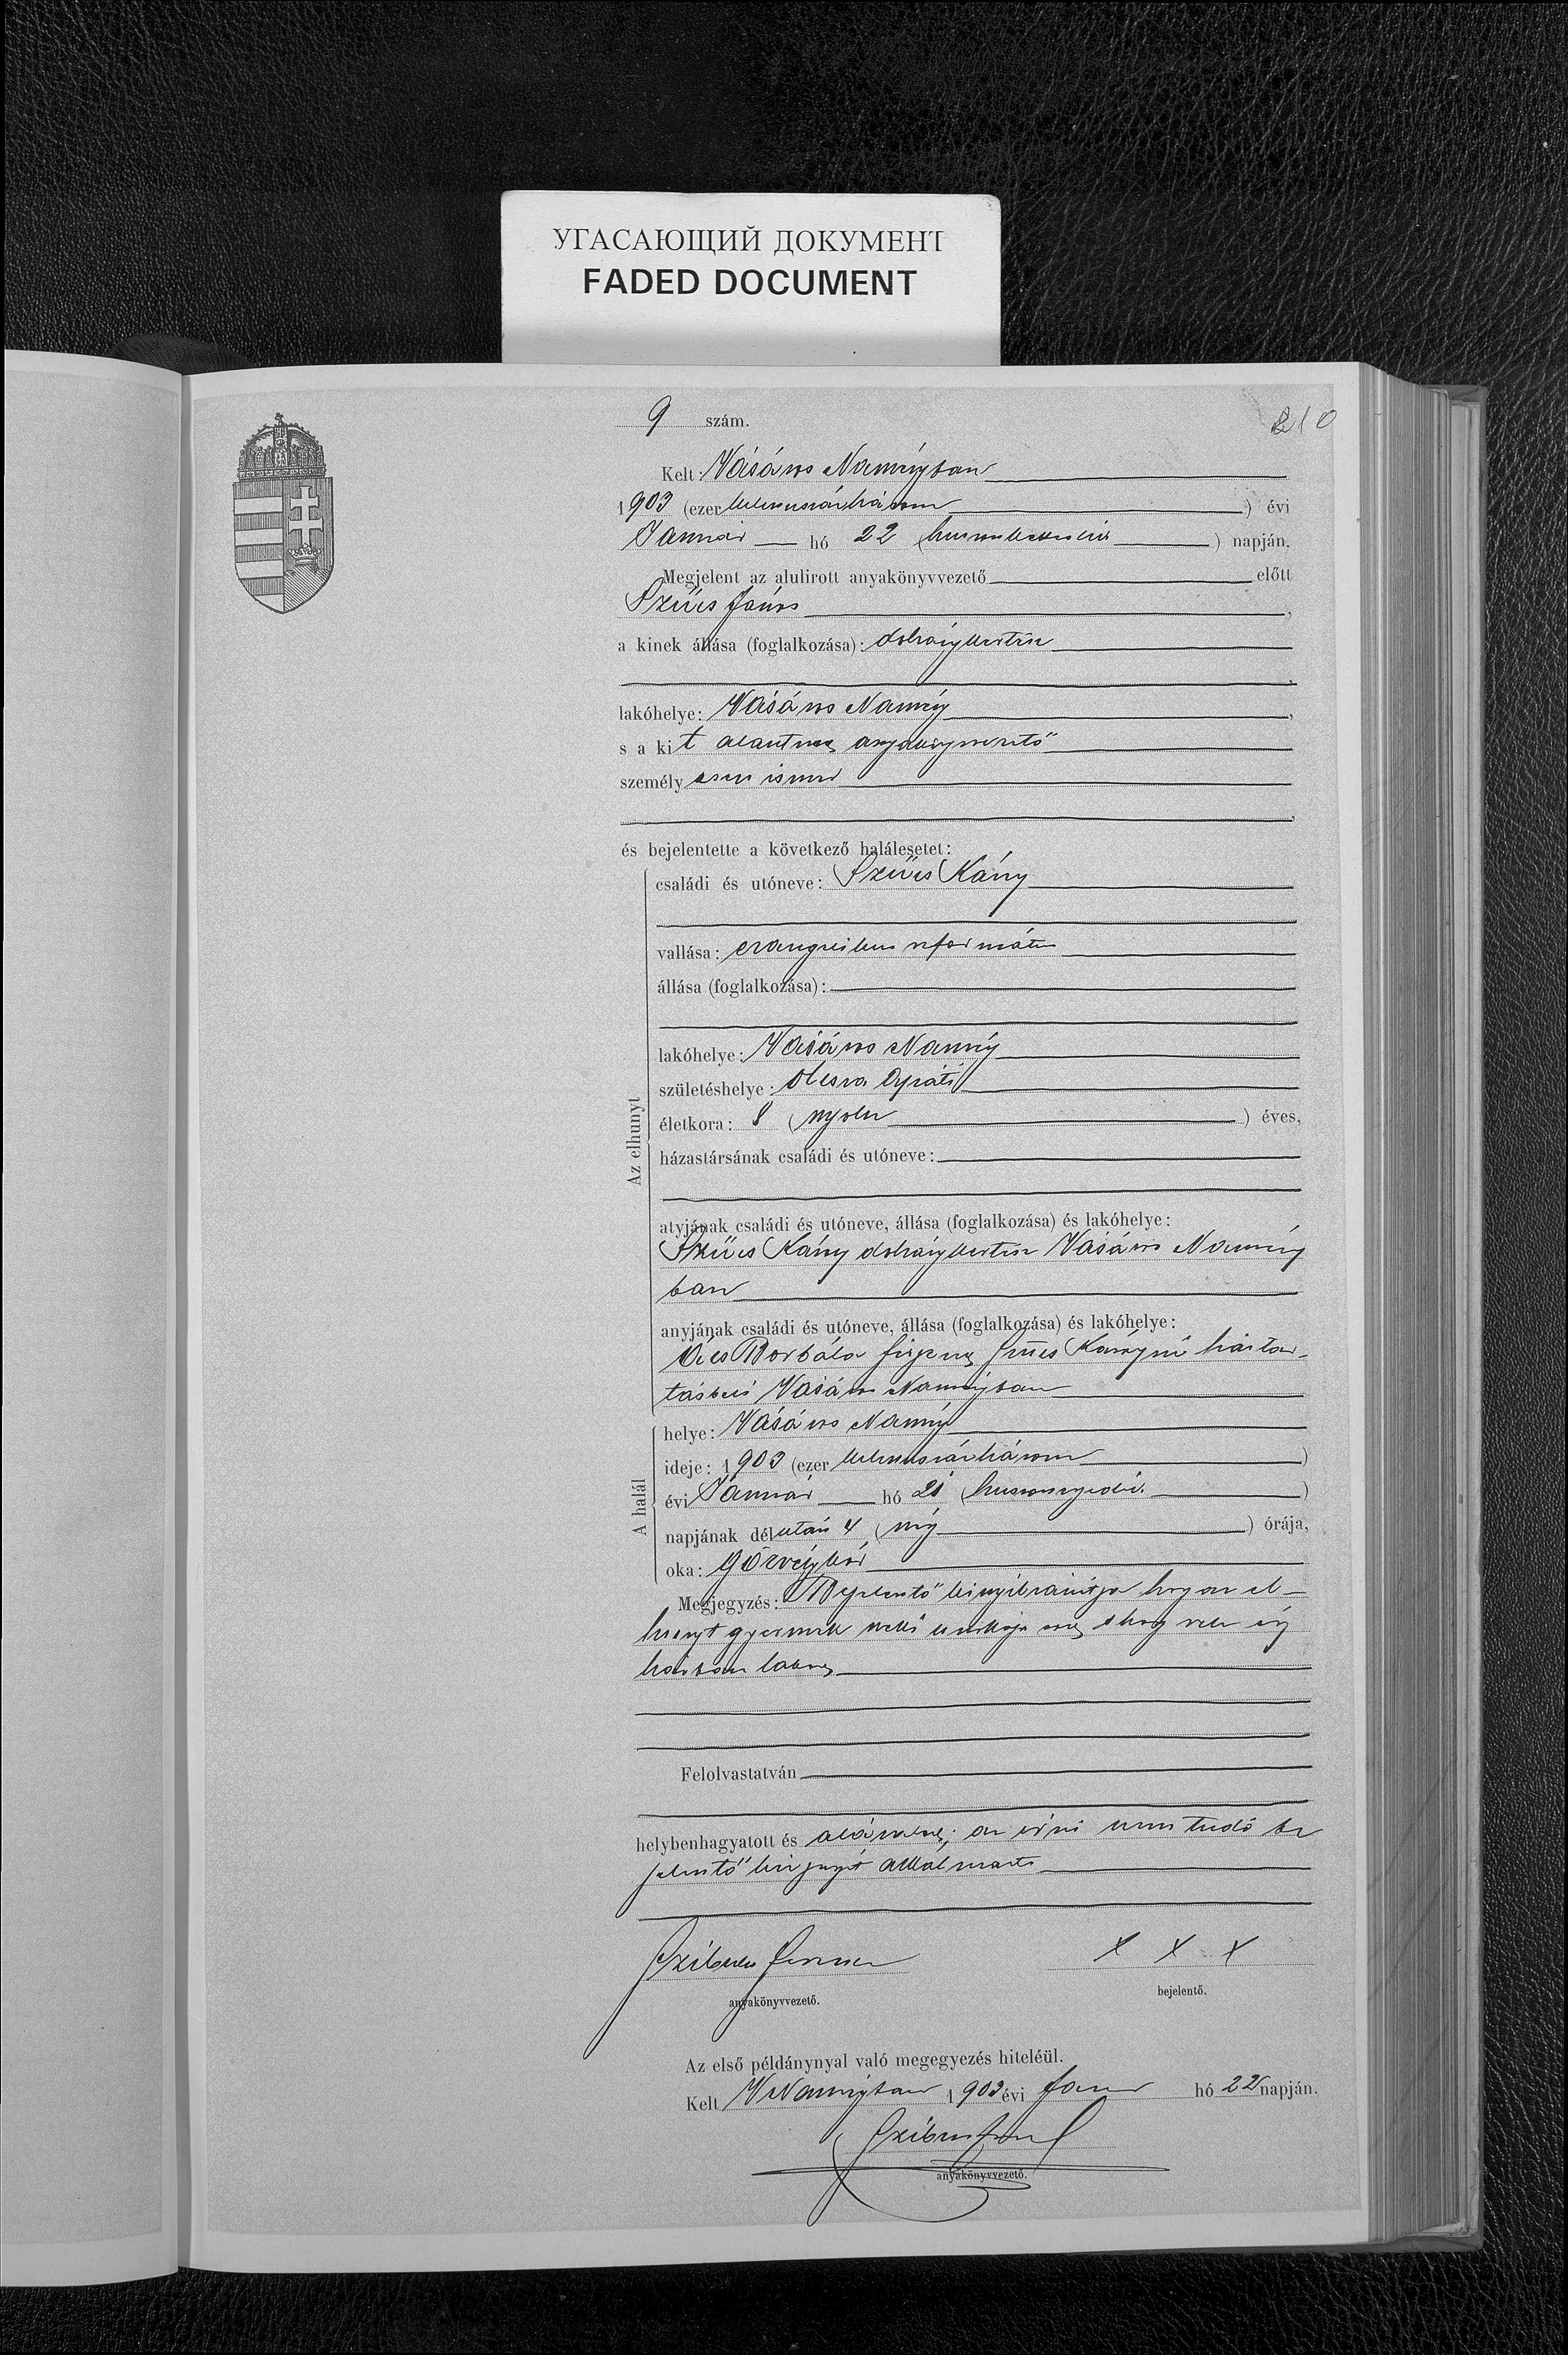 УГАСАЮЩИЙ ДОКУМЕНТ
FADED DOCUMENT
9 szám.
210
Kelt: Vásáros Naményban
1903 (ezer kilenczszázhárom) évi
Január hó 22 (huszonkettedik) napján.
Megjelent az alulirott anyakönyvvezető előtt
Szűcs János,
a kinek állása (foglalkozása): dohánykertész
,
lakóhelye: Vásáros Namény,
s a kit alantnev anyakönyvvezető
személyesen ismer
,
és bejelentette a következő halálesetet:
Az elhunyt
családi és utóneve: Szűcs Károly
vallása: evangelikus református
állása (foglalkozása):
lakóhelye: Vásáros Namény
születéshelye: Olcsva Apáti
életkora: 8 (nyolcz) éves,
házastársának családi és utóneve:
atyjának családi és utóneve, állása (foglalkozása) és lakóhelye:
Szűcs Károly dohánykertész Vásáros Namény
ban
anyjának családi és utóneve, állása (foglalkozása) és lakóhelye:
Borbála Szűcs Károlyné háztar-
tásbeli Vásáros Naményban
A halál
helye: Vásáros Namény
ideje: 1903 (ezer kilenczszázhárom)
évi Január hó 21 (huszonegyedik)
napjának délután 4 (négy) órája,
oka: görvélykór
Megjegyzés: Bejelentő kinyilvánítja hogy az el-
hunyt gyermek neki unokája volt s hogy vele egy
házban lakott
Felolvastatván
helybenhagyatott és aláíratott; az irni nem tudó be
jelentő kézjegyét alkalmazta
anyakönyvvezető.
x x x
bejelentő.
Az első példánynyal való megegyezés hiteléül.
Kelt V Naményban 1903 évi Január hó 22 napján.
anyakönyvvezető.